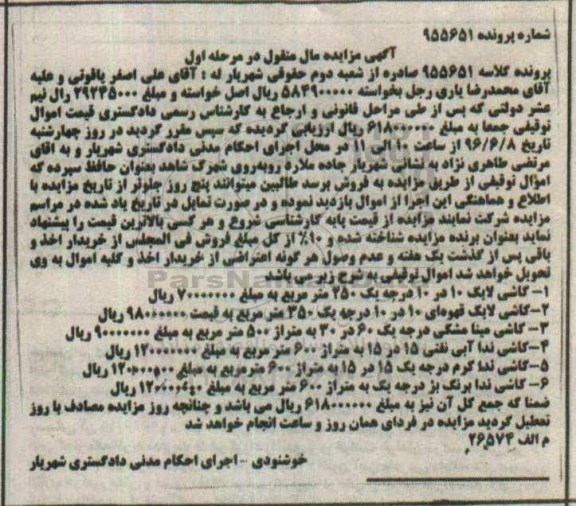 شماره پرونده ۹۵۵۶۵۱
آگهی مزایده مال منقول در مرحله اول
پرونده کلاسه ۹۵۵۶۵۱ صادره از شعبه دوم حقوقی شهریار له : آقای علی اصغر یاقوتی و علیه
آقای محمدرضا یاری رجل بخواسته ۵۸۴۹۰۰۰۰۰ ریال اصل خواسته و مبلغ ۲۹۲۴۵۰۰۰ رال نیم
عشر دولتی که پس از طی مراحل قانونی و ارجاع به کارشناس رسمی دادگستری قیمت اموال
توقیفی جمعا به مبلغ ۶۱۸۰۰۰۰۰۰ ریال ارزیابی گردیده که سپس مقرر گردید در روز چهارشنبه
تاریخ ۹۶/۶/۸ از ساعت ۱۰ الی ۱۱ در محل اجرای احکام مدنی دادگستری شهریار و به اقای
مرتضی طاهری نژاد به نشانی شهریار جاده ملارد روبه‌روی شهرک شاهد بعنوان حافظ سپرده که
اموال توقیفی از طریق مزایده به فروش برسد طالبین میتوانند پنج روز جلوتر از تاریخ مزایده با
اطلاع و هماهنگی این اجرا از اموال بازدید نموده و در صورت تمایل در تاریخ یاد شده در مراسم
مزایده شرکت نمایند مزایده از قیمت پایه کارشناسی شروع و هر کسی بالاترین قیمت را پیشنهاد
نماید بعنوان برنده مزایده شناخته شده و ۱۰٪ از کل مبلغ فروش فی المجلس از خریدار اخذ و
باقی پس از گذشت یک هفته و عدم وصول هر گونه اعتراضی از خریدار اخذ و کلیه اموال به وی
تحویل خواهد شد اموال توقیفی به شرح زیر می باشد
۱- کاشی لایک ۱۰ در ۱۰ درجه یک ۲۵۰ متر مربع به مبلغ ۷۰۰۰۰۰۰۰ ریال
۲- کاشی لایک قهوه‌ای ۱۰ در ۱۰ درجه یک ۳۵۰ متر مربع به قیمت ۹۸۰۰۰۰۰۰ ریال
۳- کاشی مینا مشکی درجه یک ۶۰ در ۳۰ به متراژ ۵۰۰ متر مربع به مبلغ ۹۰۰۰۰۰۰۰ ریال
۴- کاشی ندا آبی نفتی ۱۵ در ۱۵ به متراژ ۶۰۰ متر مربع به مبلغ ۱۲۰۰۰۰۰۰۰ ریال
۵- کاشی ندا کرم درجه یک ۱۵ در ۱۵ به متراژ ۶۰۰ متر مربع به مبلغ ۱۲۰۰۰۰۰۰۰ ریال
۶- کاشی ندا برنگ بژ درجه یک به متراژ ۶۰۰ متر مربع به مبلغ ۱۲۰۰۰۰۰۰۰ ریال
ضمنا که جمع کل آن نیز به مبلغ ۶۱۸۰۰۰۰۰۰ ریال می باشد و چنانچه روز مزایده مصادف با روز
تعطیل گردید مزایده در فردای همان روز و ساعت انجام خواهد شد
م الف ۲۶۵۷۴
خوشنودی - اجرای احکام مدنی دادگستری شهریار